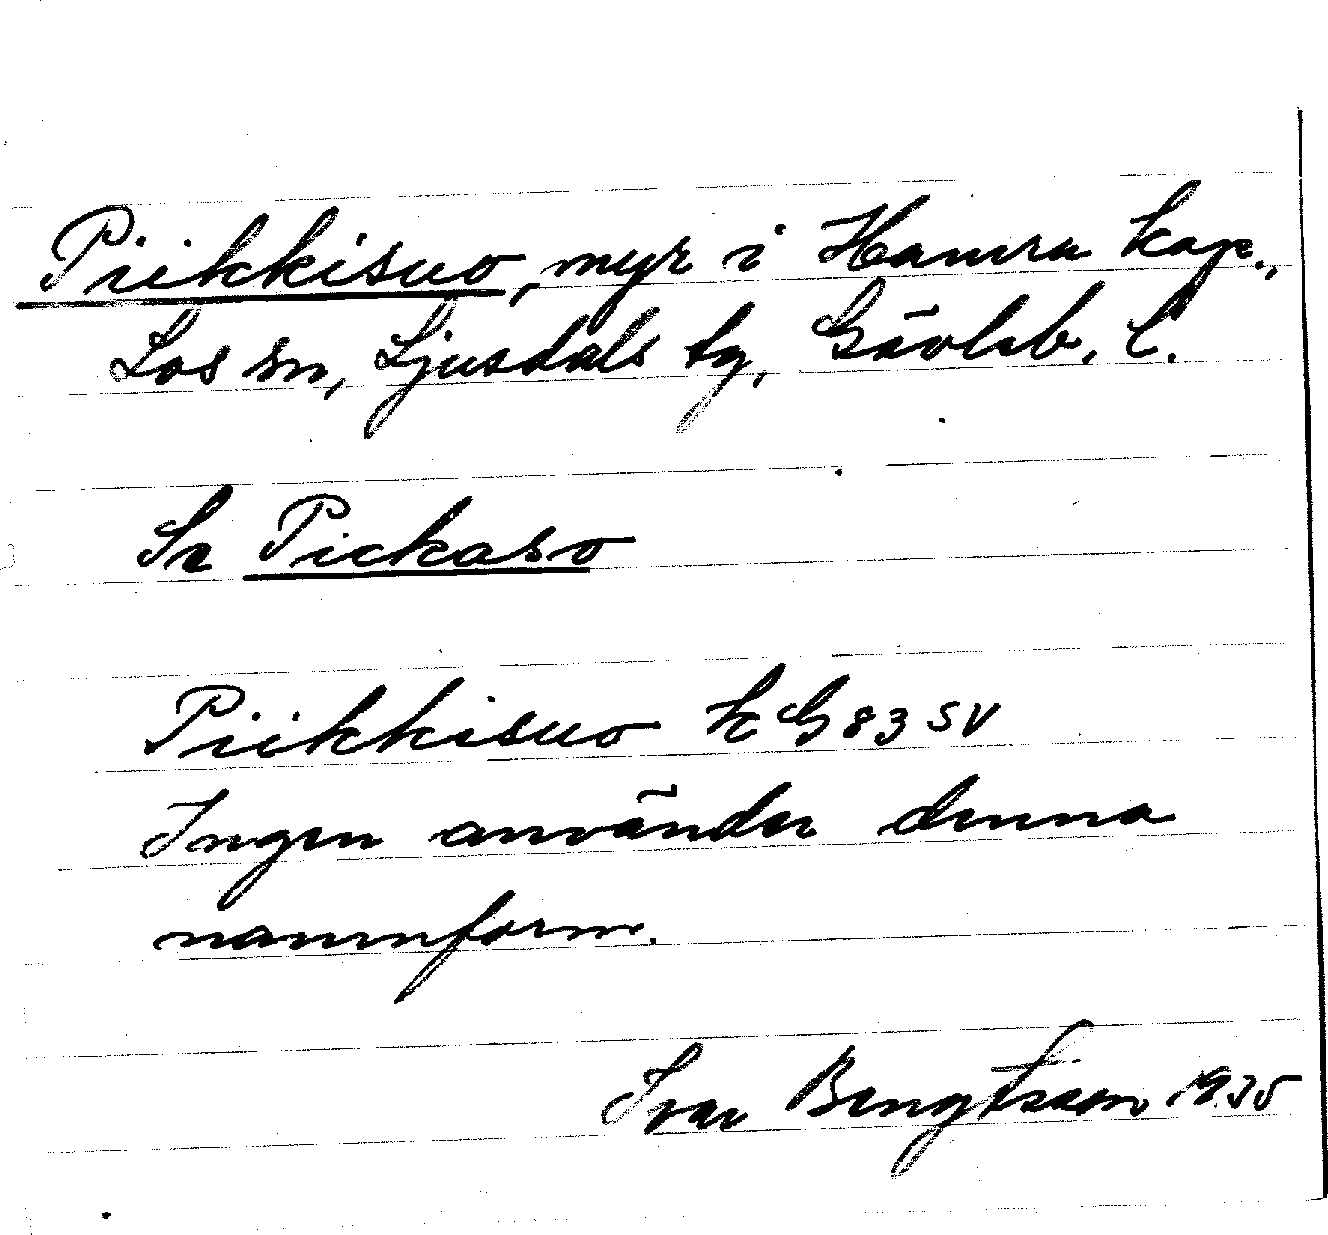 Piikkisuo, myr i Hamra kap.,
Los sn, Ljusdals tg, Gävleb. l.
Se Pickaso
Piikkisuo kG 83 SV
Ingen använder denna
namnform.
Ivar Bengtsson 1935